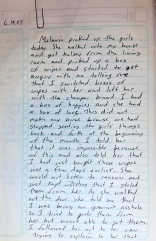 Melanie picked up the girls
today. She walked into my house
and got kalena from the living
room and picked up a box
of wipes and started to get
angry with me telling me
that I switched boxes of
wipes with her and left her
with the cheaper brand I had
a box of huggies and she had
a box of. She did not
make any sense because we had
stopped sending the girls things
back and forth at the beginning
of the month. I told her
that it was impossible because
of this and also told her that
I had just bought those wipes
just a few days earlier. She
would not listen to reason and
just kept insisting that I stole
them from her. As she walked
out the door she told me that
I was being an ignorant
so I tried to grab them from
her but wasn't able to get them.
I followed her out to her
trying to explain to her that